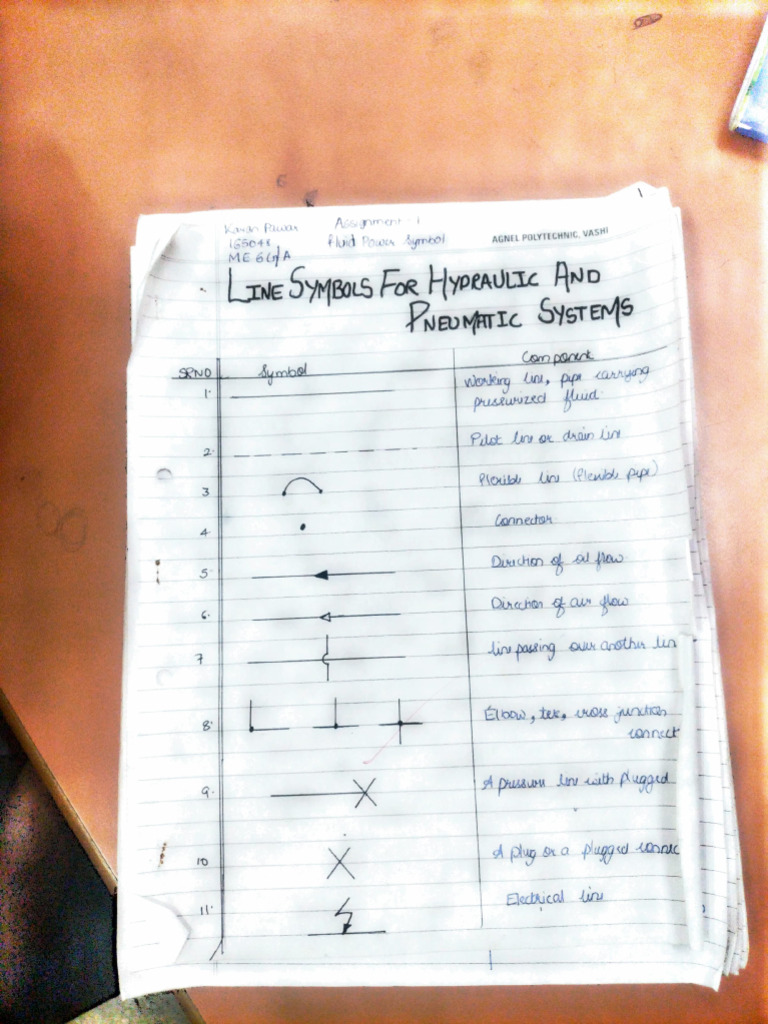 Karan Pawar Assignment - 1
165048 Fluid Power Symbol AGNEL POLYTECHNIC, VASHI
ME 6G/A
LINE SYMBOLS FOR HYDRAULIC AND
PNEUMATIC SYSTEMS
SRNO Symbol Component
1. Working line, pipe carrying
pressurized fluid.
2. Pilot line or drain line
3 Flexible line (Flexible pipe)
4. Connector
5. Direction of oil flow
6. Direction of air flow
7 line passing over another lin
8. Elbow, tee, cross junction
connect
9. A pressure line with plugged
10 A plug or a plugged connec
11. Electrical line